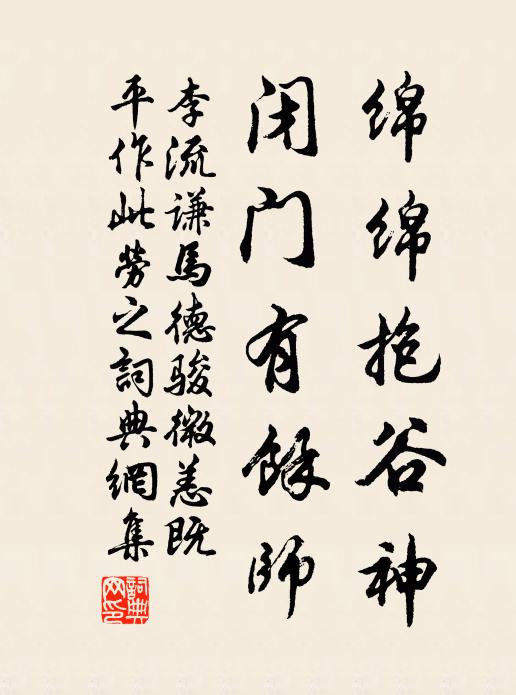 绵绵抱谷神
闭门有餘师
李流谦馬德骏微恙既
平作此劳之詞典網集
詞典網印